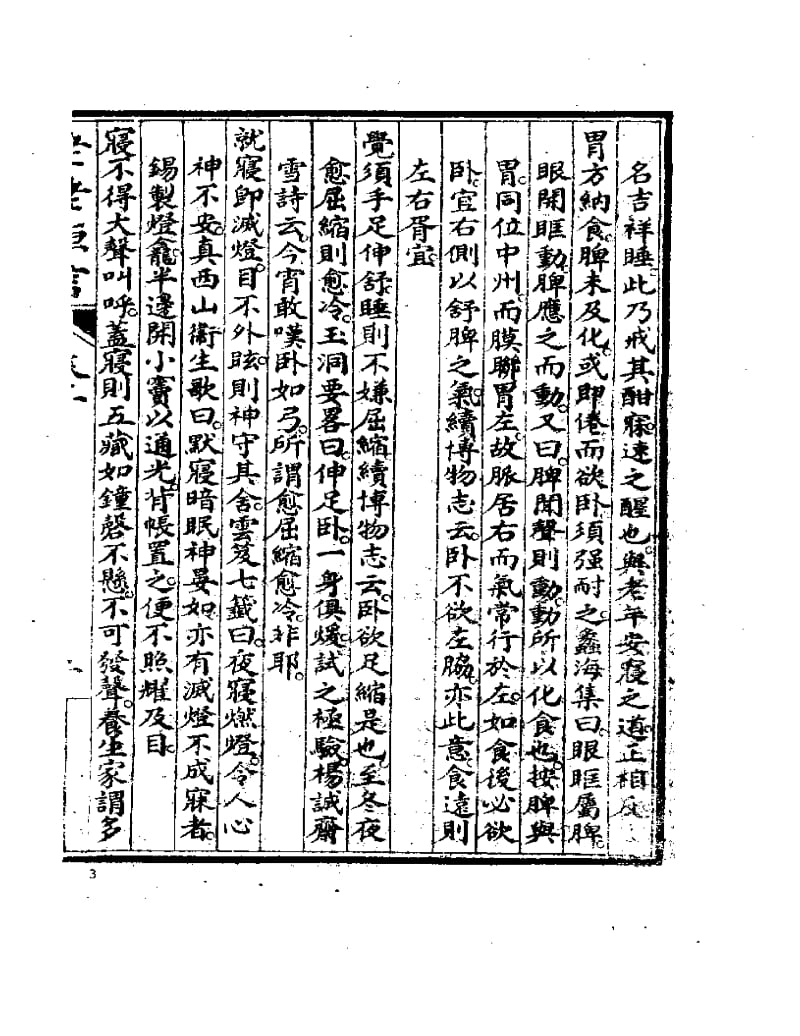 名吉祥睡。此乃戒其酣寐。速之醒也。與老年安寢之道。正相反。
胃方納食。脾未及化。或即倦而欲臥。須强耐之。蠡海集曰。眼眶屬脾。
眼開眶動。脾應之而動。又曰。脾聞聲則動。動所以化食也。按脾與
胃。同位中州。而膜聯胃左。故脈居右而氣常行於左。如食後必欲
臥。宜右側以舒脾之氣。續博物志云。臥不欲左脇。亦此意。食遠則
左右胥宜。
覺須手足伸舒。睡則不嫌屈縮。續博物志云。臥欲足縮是也。至冬夜
愈屈縮則愈冷。玉洞要畧曰。伸足臥。一身俱煖。試之極驗。楊誠齋
雪詩云。今宵敢嘆臥如弓。所謂愈屈縮愈冷。非耶。
就寢即滅燈。目不外眩。則神守其舍。雲笈七籤曰。夜寢燃燈。令人心
神不安。真西山衞生歌曰。默寢暗眠神晏如。亦有滅燈不成寐者。
錫製燈龕。半邊開小竇以通光。背帳置之。便不照耀及目。
寢不得大聲叫呼。蓋寢則五藏如鐘磬不懸。不可發聲。養生家謂多
老老恒言
卷一
一
3